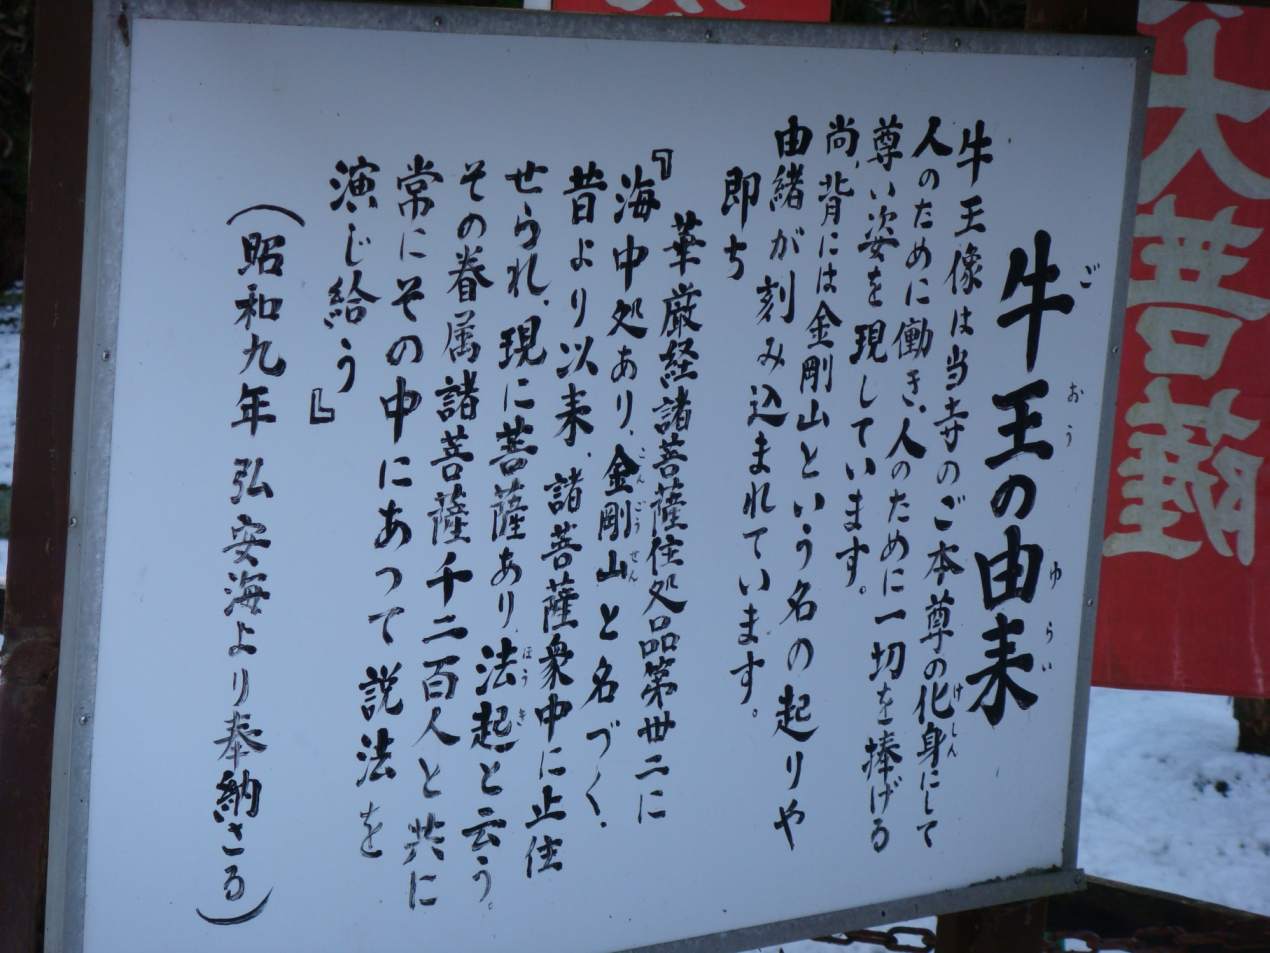 牛王の由来
ごおう ゆらい
牛王像は当寺のご本尊の化身にして
けしん
人のために働き、人のために一切を捧げる
尊い姿を現しています。
尚、背には金剛山という名の起りや
由緒が刻み込まれています。
即ち
華厳経諸菩薩住処品第丗二に
『海中処あり、金剛山と名づく、
こんごうせん
昔より以来、諸菩薩衆中に止住
せられ、現に菩薩あり法起と云う。
ほうき
その眷属諸菩薩千二百人と共に
常にその中にあって説法を
演じ給う』
(昭和九年 弘安海より奉納さる)
大菩薩